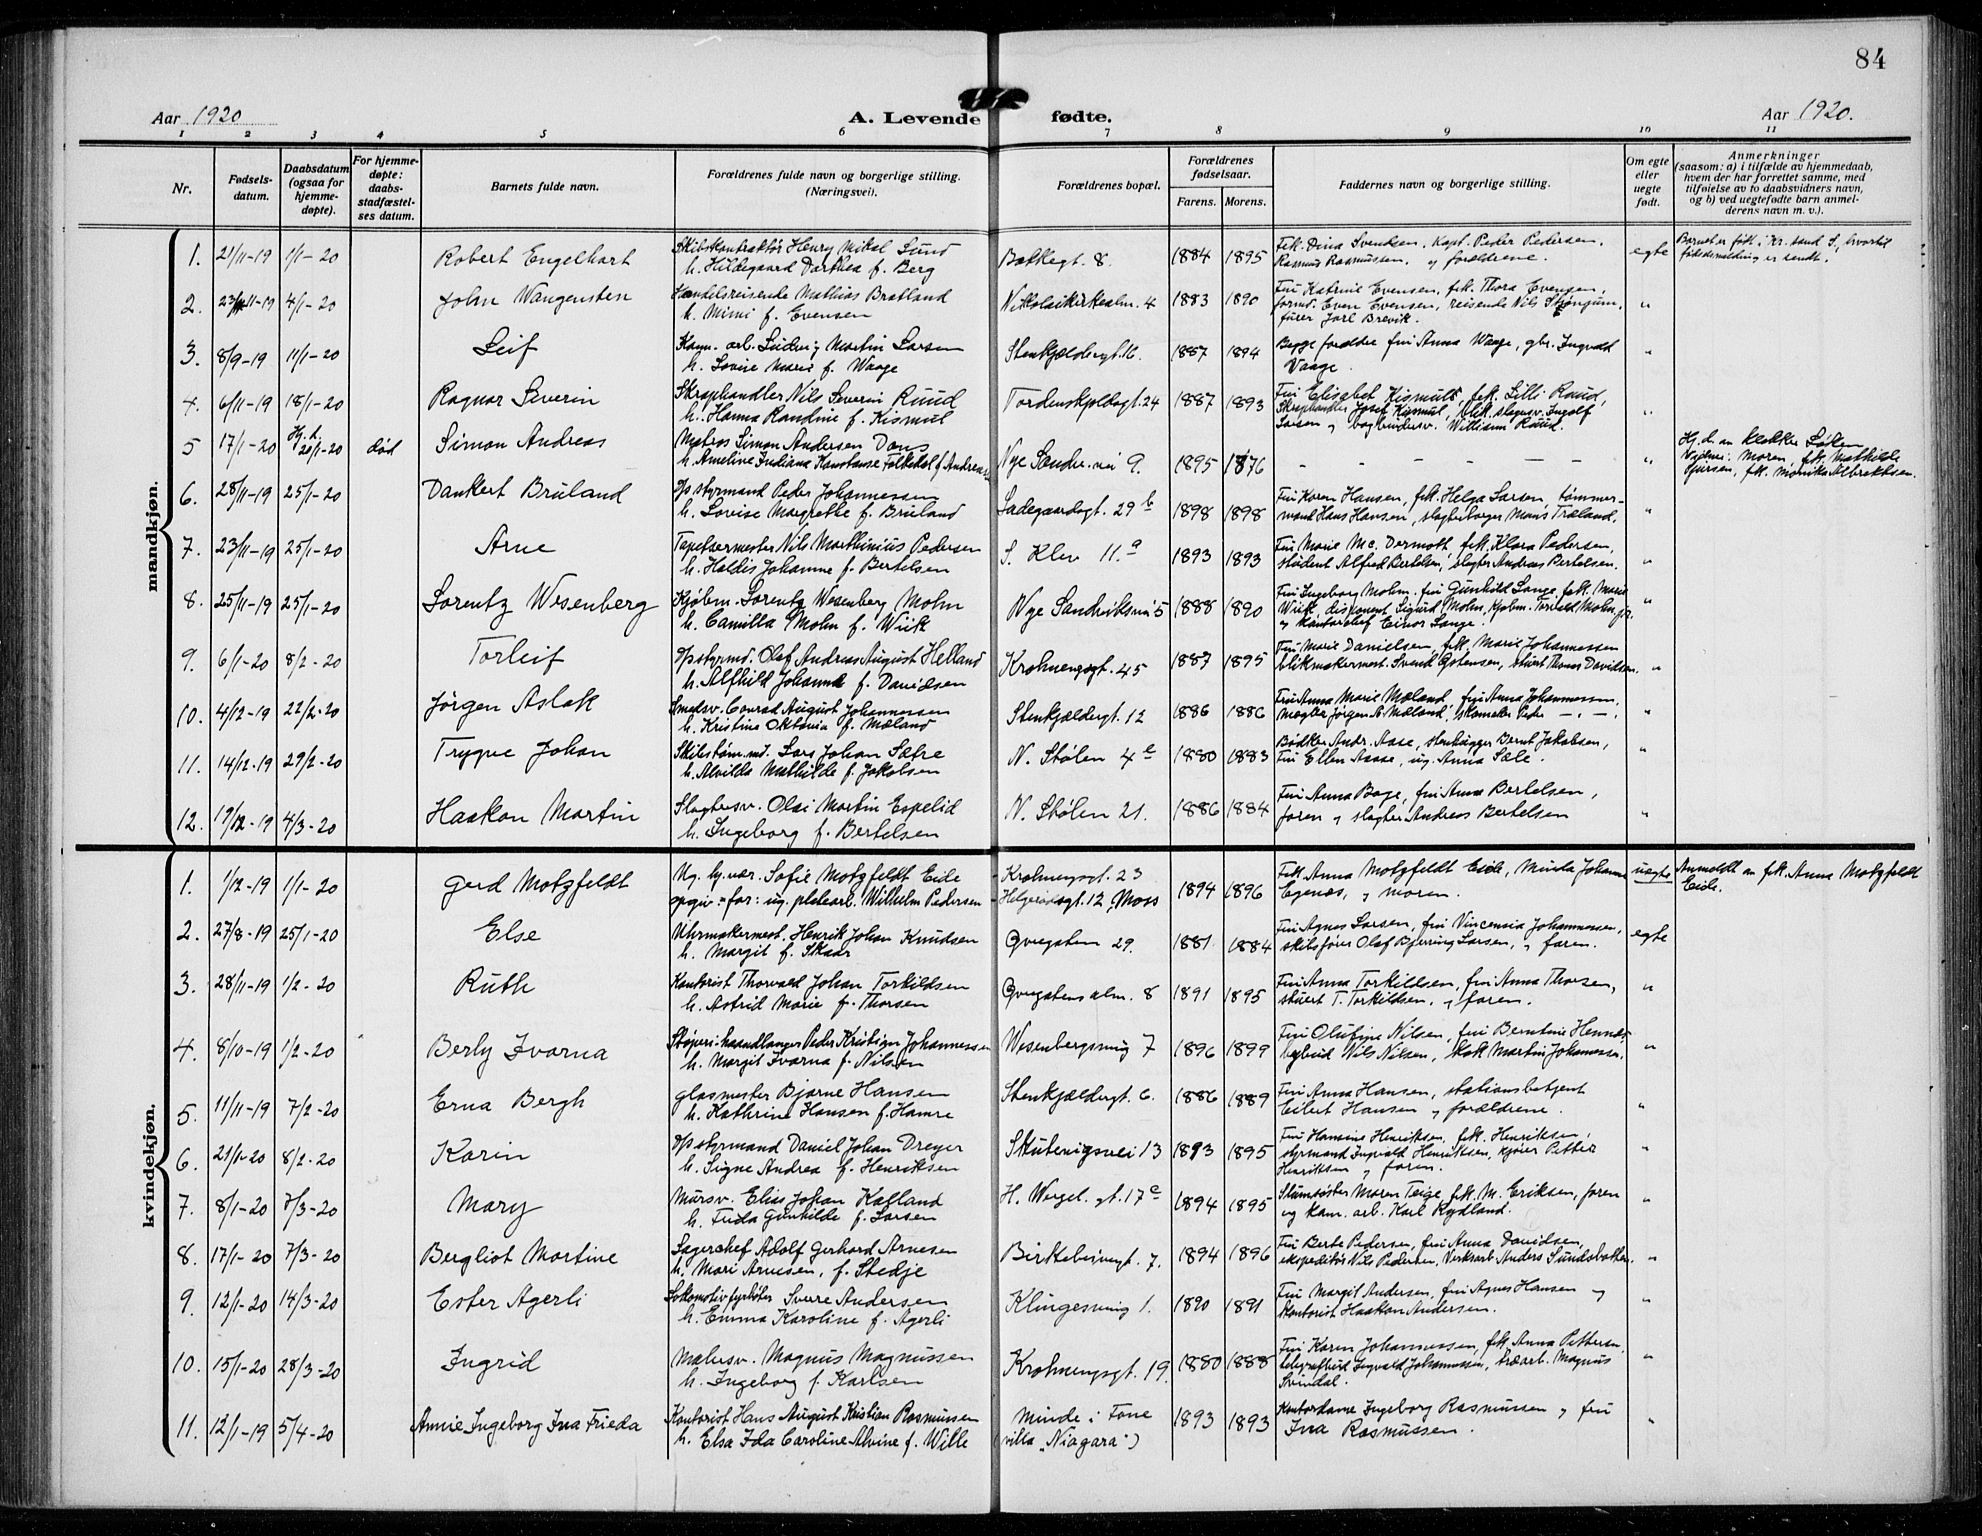 84
Aar 1920
A. Levende fødte.
Aar 1920.
1 2 3 4 5 6 7 8 9 10 11
Nr.
Fødsels-
datum.
Daabsdatum
(ogsaa for
hjemme-
døpte).
For hjemme-
døpte:
daabs-
stadfæstel-
ses datum.
Barnets fulde navn.
Forældrenes fulde navn og borgerlige stilling.
(Næringsvei).
Forældrenes bopæl.
Forældrenes
fødselsaar.
Farens. Morens.
Faddernes navn og borgerlige stilling.
Om egte
eller
uegte
født.
Anmerkninger
(saasom: a) i tilfælde av hjemmedaab,
hvem der har forrettet samme, med
tilføielse av to daabsvidners navn,
og b) ved uegtefødte barn anmel-
derens navn m. v.).
mandkjøn.
1. 21/11-19 1/1-20 Robert Engelhart
Skibskontraktør Henry Mikal Lund
h. Hildegaard Dorthea f. Berg
Bakkegt. 8. 1884 1895
Frk. Dina Svendsen, Kapt. Peder Pedersen,
Rasmus Rasmussen, og forældrene.
egte
Barnet er født i Kr.sand S., hvortil
fødselsmelding er sendt.
2. 23/11-19 4/1-20 John Wangensten
Handelsreisende Mathias Bratland
h. Mimi f. Evensen
Nikolaikirkealm. 4 1883 1890
Fru Katrine Evensen, frk. Thora Evensen,
formd. Even Evensen, reisende Nils
fører Jarl Brevik.
"
3. 8/9-19 11/1-20 Leif
Kom. arb. Ludvig Martin Larsen
h. Lovise Marie f. Waage
Stenkjeldergt. 16. 1887 1894
Begge forældre fru Anna Waage, gbr. Ingvald
Vaage.
"
4. 6/11-19 18/1-20 Ragnar Severin
Skraphandler Nils Severin Ruud
h. Hanna Randine f. Kismul
Tordenskjoldsgt. 24 1887 1893
Fru Elisabet Kismul, frk. Lilli Ruud,
Skraphandler Josef Kismul, blik.slagersv. Ingolf
Larsen og bogbindersv. William Ruud.
"
5 17/1-20 Hj.d. 20/1-20 død Simon Andreas
Matros Simon Andersen Dans
h. Ameline Indiana Konstanse Folkedal f. Andreassen
Nye Sandv. vei 9. 1895 1876
- - - - - -
"
Hj.d. av Løken
Vidner: Moren, frk. Mathilde
Gjersen, frk. Monika Albrektsen.
6. 28/11-19 25/1-20 Dankert Bruland
Opstyrmand Peder Johannessen
h. Lovise Margrethe f. Bruland
Ladegaardsgt. 29b 1898 1898
Fru Karen Hansen, frk. Helga Larsen, tømmer-
mand Hans Hansen, slagterborger Mons Træland.
"
7. 23/11-19 25/1-20 Arne
Tapetsermester Nils Marthinius Pedersen
h. Haldis Johanne f. Bertelsen
S. Klev 11.a 1893 1893
Fru Marie Mc. Dermott, frk. Klara Pedersen,
student Alfred Bertelsen, slagter Andreas Bertelsen.
"
8. 25/11-19 25/1-20 Lorentz Wesenberg
Kjøbm. Lorentz Wesenberg Mohn
h. Camilla Mohn f. Wiik
Nye Sandviksvei 5 1888 1890
Fru Ingeborg Mohn, fru Gunhild Lange, frk. Marie
Wiik, disponent Sigurd Mohn, kjøbm. Torvald Mohn jr.
og kontorchef Einar Lange.
"
9. 6/1-20 8/2-20 Torleif
Opstyrmd. Olaf Andreas August Helland
h. Alfhild Johanne f. Davidsen
Krohnengsgt. 45 1887 1895
Fru Marie Danielsen, frk. Marie Johannessen
blikmakermest. Svend Gotensen, stuert Thomas Davidsen.
"
10. 4/12-19 22/2-20 Jørgen Aslak
Smedsv. Conrad August Johannessen
h. Kristine Oktavia f. Mæland
Stenkjeldergt. 12 1886 1886
Fru Anna Marie Mæland, fru Anna Johannessen,
Mægler Jørgen A. Mæland, skomaker Peder -"-.
"
11. 14/12-19 29/2-20 Trygve Johan
Skibstøm.md. Lars Johan Sætre
h. Alvilde Mathilde f. Jakobsen
N. Stølen 4e 1880 1883
Bødker Andr. Aase, stenhugger Bernt Jakobsen,
Fru Ellen Aase, ug. Anna Sæle.
"
12. 19/12-19 4/3-20 Haakon Martin
Slagtersv. Olai Martin Espelid
h. Ingeborg f. Bertelsen
N. Stølen 21. 1886 1884
Fru Anna Boge, fru Anna Bertelsen,
faren og slagter Andreas Bertelsen
"
kvindekjøn.
1. 1/12-19 1/1-20 Gerd Motzfeldt
Ug. sy.vær. Sofie Motzfeldt Eide
opgiv. far: ug. platearb. Wilhelm Pedersen
Krohnengsgt. 23
Helgerødsgt. 12, Moss
1894 1896
Frk. Anna Motzfeldt Eide, Minda Johanne
Egenæs, og moren.
uegte
Anmeldt av frk. Anna Motzfeldt
Eide.
2. 27/8-19 25/1-20 Else
Uhrmakermest. Henrik Johan Knudsen
h. Margit f. Skaar
Øvregaten 29. 1881 1884
Fru Agnes Larsen, fru Vincensia Johannessen,
skibsfører Olaf Bjerring Larsen, og faren.
egte
3. 28/11-19 1/2-20 Ruth
Kontorist Thorvald Johan Torkildsen
h. Astrid Marie f. Thorsen
Øvregatens alm. 8 1891 1895
Fru Anna Torkildsen, fru Anna Thorsen,
stuert T. Torkildsen, og faren.
"
4. 8/10-19 1/2-20 Berly Ivarna
Støperi-haandlanger Peder Kristian Johannessen
h. Margit Ivarna f. Nilsen
Wesenbergsmug 7 1896 1899
Fru Olufine Nilsen, fru Berntine
bybud Nils Nilsen, kok Martin Johannessen.
"
5. 11/11-19 7/2-20 Erna Bergh
Glasmester Bjarne Hansen
h. Kathrine Hansen f. Hamre
Stenkjeldergt. 6. 1886 1889
Fru Anna Hansen, stationsbetjent
Eilert Hansen og forældrene.
"
6. 21/1-20 8/2-20 Karin
Opstyrmand Daniel Johan Dreyer
h. Signe Andrea f. Henriksen
Skuteviksvei 13 1893 1895
Fru Hansine Henriksen, frk. Henriksen,
styrmand Ingvald Henriksen, kjører Petter
Henriksen og faren.
"
7. 8/1-20 7/3-20 Mary
Mursv. Elias Johan Kalland
h. Frida Gunhilde f. Larsen
H. Wergel. gt. 17c 1894 1895
Slumsøster Maren Teige, frk. M. Eriksen, faren
og kom. arb. Karl Rydland.
"
8. 17/1-20 7/3-20 Bergliot Martine
Lagerchef Adolf Gerhard Arnesen
h. Mari Arnesen, f. Stedje
Birkebeinergt. 7. 1894 1896
Fru Berte Pedersen, fru Anna Davidsen,
ekspeditør Nils Pedersen, Verksarb. Anders Sundsbakken.
"
9. 12/1-20 14/3-20 Ester Agerli
Lokomotivfyrbøter Sverre Andersen
h. Emma Karoline f. Agerli
Klingesmug 1. 1890 1891
Fru Margit Andersen, fru Agnes Hansen og
kontorist Haakon Andersen.
"
10. 15/1-20 28/3-20 Ingrid
Malersv. Magnus Magnussen
h. Ingeborg f. Karlsen
Krohnengsgt. 19. 1880 1888
Fru Karen Johannessen, frk. Anna Pettersen,
telegrafbud Ingvald Johannessen, træarb. Magnus
Svindal.
"
11. 12/1-19 5/4-20 Annie Ingeborg Ina Frieda
Kontorist Hans August Kristian Rasmussen
h. Elsa Ida Caroline Alvine f. Wille
Minde i Fane
(villa "Niagara")
1893 1893
Kontordame Ingeborg Rasmussen og fru
Ina Rasmussen.
"